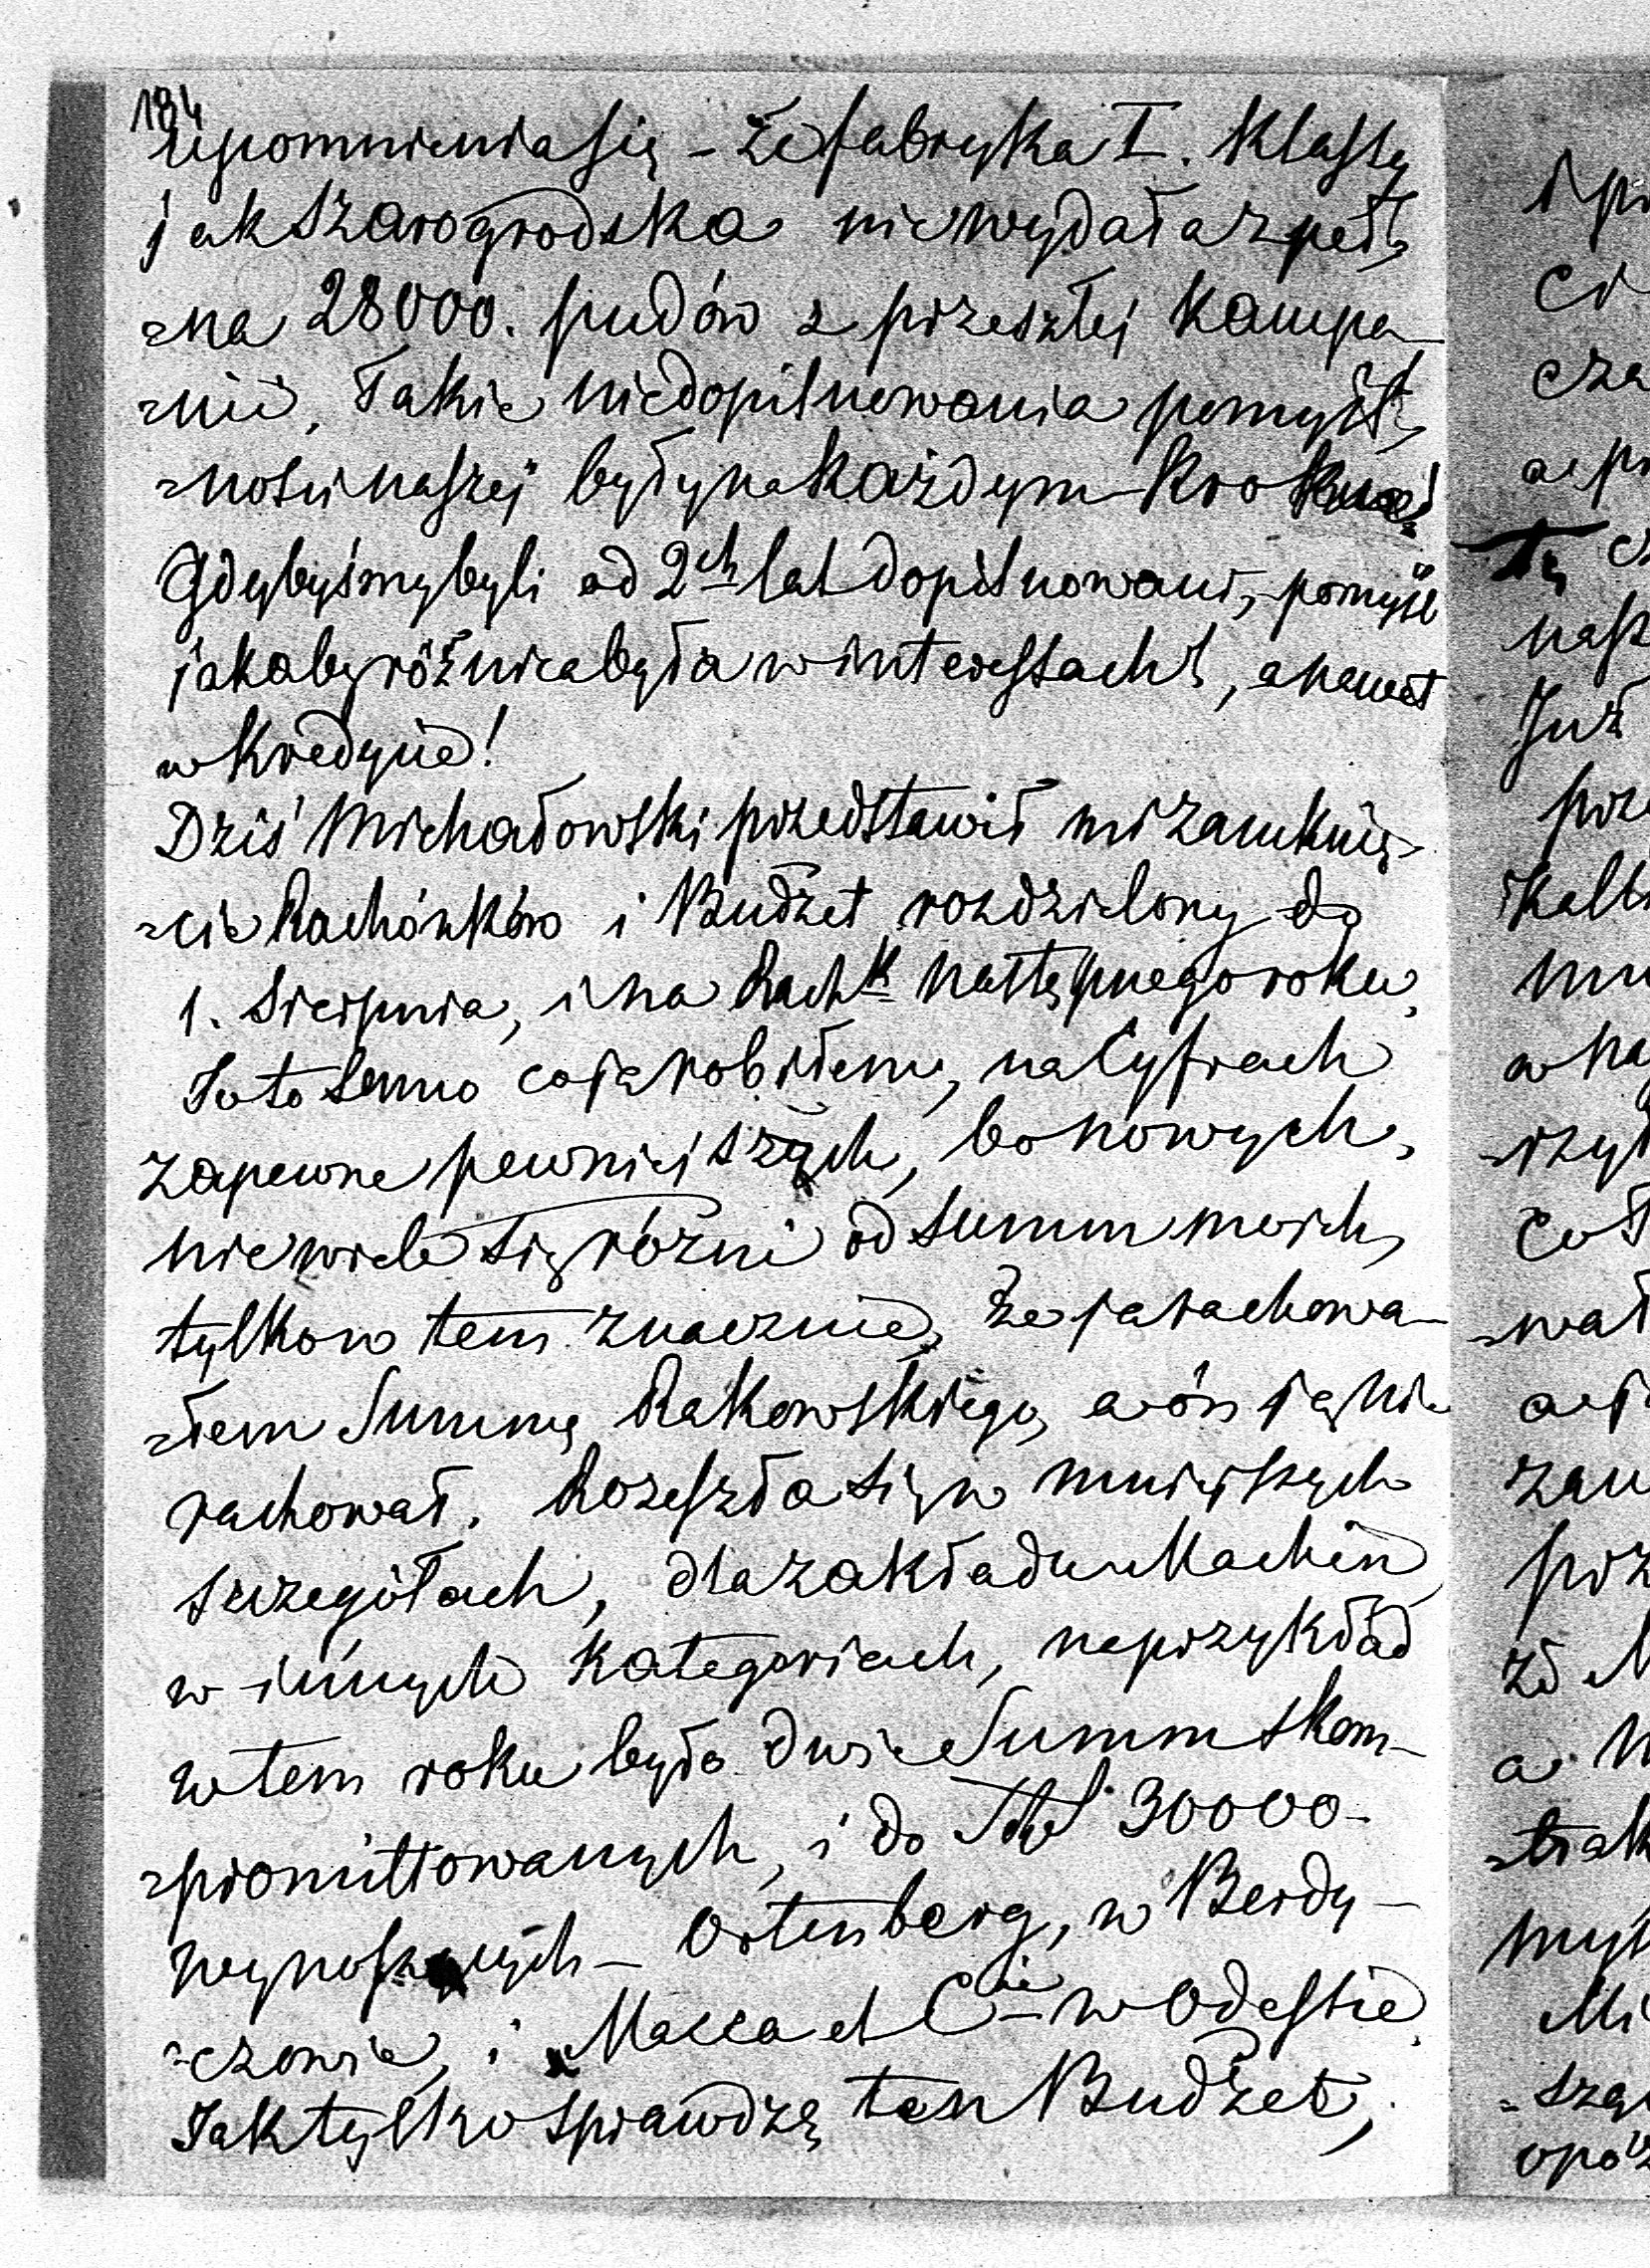 184
upomnienia się - że fabryka I. Klassy
jak Szarogrodska nie wydała zpeł,
=na 28000. pudów z przeszłej Kampa-
=nii, Takie niedopilnowania pomyśl,
=ności naszej były na każdym Kroku!
Gdybyśmy byli od 2ch lat dopilnowani, pomyśl
jaka by różnica była w interessach!, a nawet
w Kredycie!
Dziś Michałowski przedstawił mi zamknię-
=cie Rachónków i Budżet rozdzielony do
1. Sierpnia, i na Rachk następnego roku,
To to samo co ja robiłem, na Cyfrach
zapewne pewniejszych, bo nowych,
nie wiele się różni od summ moich,
tylko w tem znacznie, że ja rachowa-
=łem Summę Rakowskiego, a ón ją nie
rachował. Rozeszła się w mniejszych
szczegółach, dla zakładu Machin,
w innych Kategoriach, naprzykład
w tem roku było dwie Summ skom-
=promittowanych, i do 30000-
wynoszących - Ortenberg, w Berdy-
=czowie, i Macca et Cie w Odessie,
Jak tylko sprawdzę ten Budżet,
i pr
cze
a pr
Tę
nasz
Już
prz
mu
w na
=rzyt
=wał
prz
że M
a
Mi
=szą
opóź